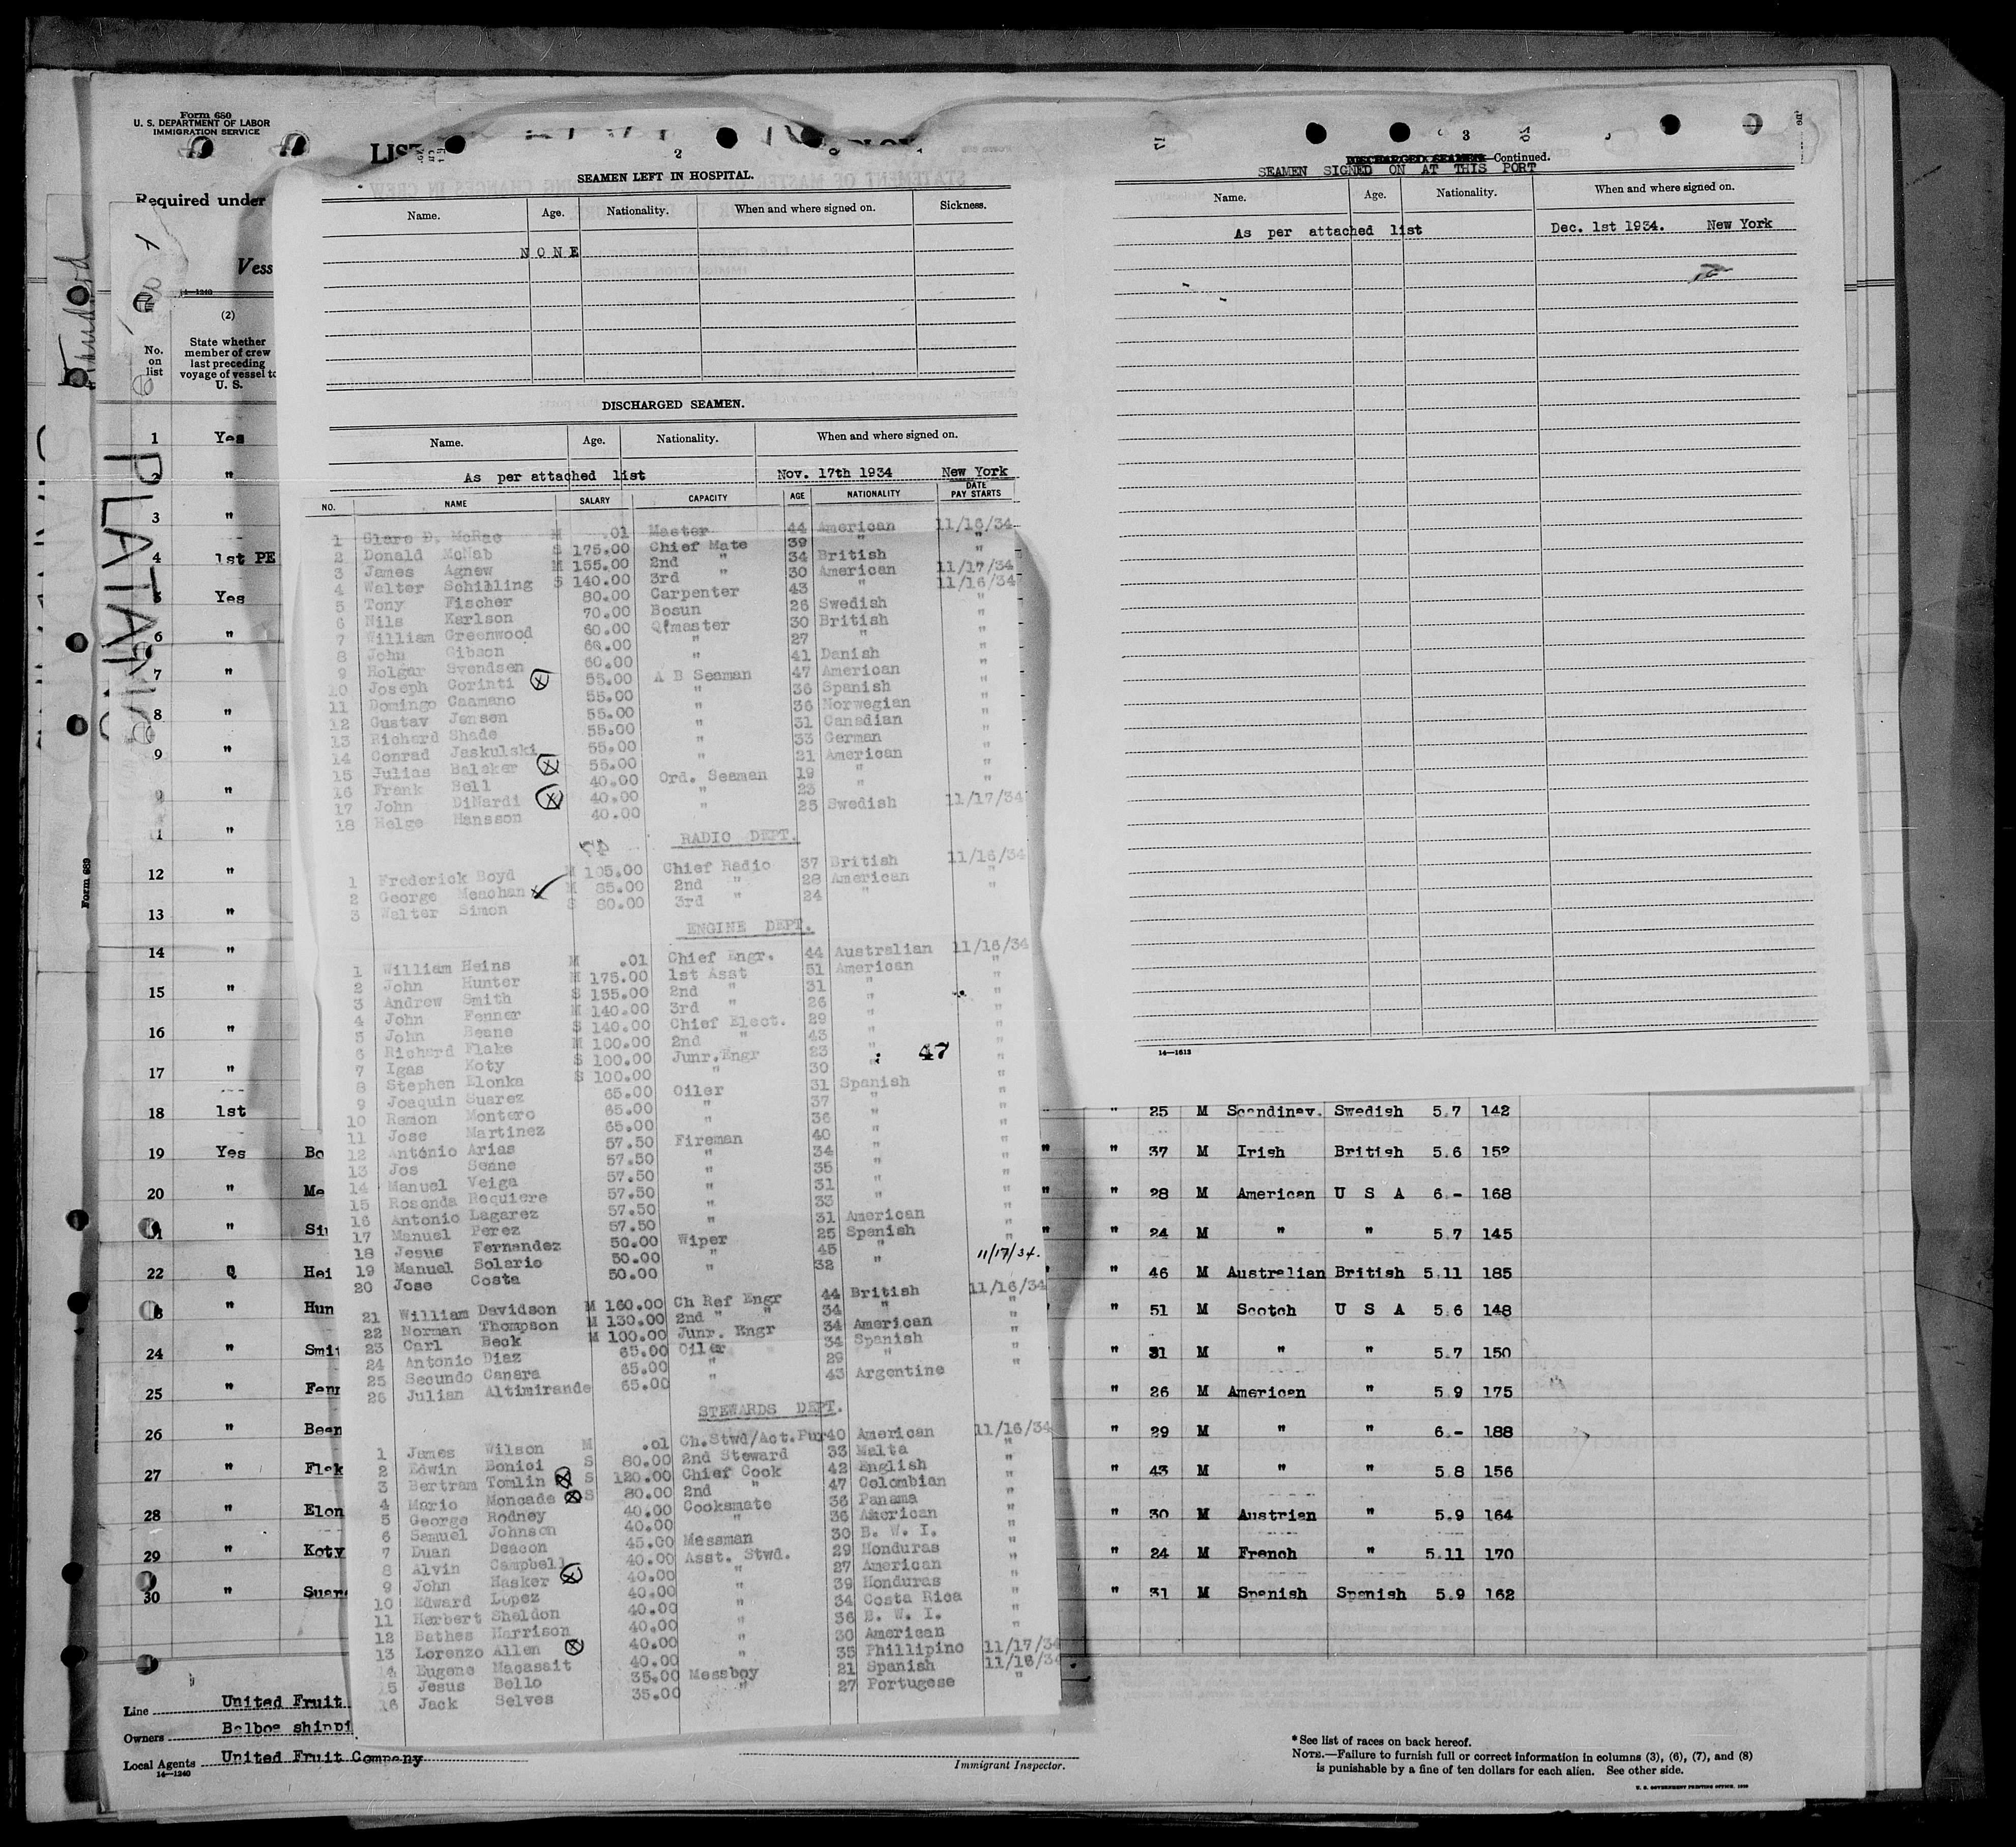 Form 680
U. S. DEPARTMENT OF LABOR
IMMIGRATION SERVICE
Required under
Vess
14—1240
(2)
No. on list
State whether member of crew last preceding voyage of vessel to U. S.
1 Yes
2 "
3 "
4 1st PE
5 Yes
6 "
7 "
8 "
9 "
"
"
12 "
13 "
14 "
15 "
16 "
17 "
18 1st
19 Yes Bo
20 " Me
" Si
22 Q Hei
" Hun
24 " Smi
25 " Fenn
26 " Bean
27 " Flak
28 " Elon
29 " Koty
30 " Suar
PLATANO
Form 689
Line United Fruit
Owners Balboa shippi
Local Agents United Fruit Company
14—1240
2
SEAMEN LEFT IN HOSPITAL.
Name. Age. Nationality. When and where signed on. Sickness.
NONE
DISCHARGED SEAMEN.
Name. Age. Nationality. When and where signed on.
As per attached list Nov. 17th 1934 New York
NO. NAME SALARY CAPACITY AGE NATIONALITY DATE PAY STARTS
1 McRae M .01 Master 44 American 11/16/34
2 Donald McNab S 175.00 Chief Mate 39 " "
3 James Agnew M 155.00 2nd " 34 British "
4 Walter Schilling S 140.00 3rd " 30 American 11/17/34
5 Tony Fischer 80.00 Carpenter 43 " 11/16/34
6 Nils Karlson 70.00 Bosun 26 Swedish "
7 William Greenwood 60.00 Q'master 30 British "
8 John Gibson 60.00 " 27 " "
9 Holgar Svendsen 60.00 " 41 Danish "
10 Joseph Corinti 55.00 A B Seaman 47 American "
11 Domingo Caamano 55.00 " 36 Spanish "
12 Gustav Jensen 55.00 " 36 Norwegian "
13 Richard Shade 55.00 " 31 Canadian "
14 Conrad Jaskulski 55.00 " 33 German "
15 Julias Balaker 55.00 " 21 American "
16 Frank Bell 40.00 Ord. Seaman 19 " "
17 John DiNardi 40.00 " 23 " "
18 Helge Hansson 40.00 " 25 Swedish 11/17/34
RADIO DEPT.
1 Frederick Boyd M 105.00 Chief Radio 37 British 11/16/34
2 George Meachan M 85.00 2nd " 28 American "
3 Walter Simon S 80.00 3rd " 24 "
ENGINE DEPT.
1 William Heins M .01 Chief Engr. 44 Australian 11/16/34
2 John Hunter M 175.00 1st Asst 51 American "
3 Andrew Smith S 155.00 2nd " 31 " "
4 John Fenner M 140.00 3rd " 26 " "
5 John Beane S 140.00 Chief Elect. 29 " "
6 Richard Flake M 100.00 2nd " 43 " "
7 Igas Koty S 100.00 Junr. Engr 23 " "
47
8 Stephen Elonka S 100.00 " 30 " "
9 Joaquin Suarez 65.00 Oiler 31 Spanish "
10 Ramon Montero 65.00 " 37 " "
11 Jose Martinez 65.00 " 36 " "
12 António Arias 57.50 Fireman 40 " "
13 Jos Seane 57.50 " 34 " "
14 Manuel Veiga 57.50 " 35 " "
15 Rosenda Requiere 57.50 " 31 " "
16 Antonio Lagarez 57.50 " 33 " "
17 Manuel Perez 57.50 " 31 American "
18 Jesus Fernandez 50.00 Wiper 25 Spanish "
19 Manuel Solario 50.00 " 45 " "
20 Jose Costa 50.00 " 32 " 11/17/34.
21 William Davidson M 160.00 Ch Ref Engr 44 British 11/16/34
22 Norman Thompson M 130.00 2nd " " 34 " "
23 Carl Beck M 100.00 Junr. Engr 34 American "
24 Antonio Diaz 65.00 Oiler 34 Spanish "
25 Secundo Canara 65.00 " 29 " "
26 Julian Altimirande 65.00 " 43 Argentine "
STEWARDS DEPT.
1 James Wilson M .01 Ch.Stwd/Act.Pur 40 American 11/16/34
2 Edwin Bonici S 80.00 2nd Steward 33 Malta "
3 Bertram Tomlin S 120.00 Chief Cook 42 English "
4 Mario Moncade S 80.00 2nd " 47 Colombian "
5 George Rodney 40.00 Cooksmate 36 Panama "
6 Samuel Johnson 40.00 " 36 American "
7 Duan Deacon 45.00 Messman 30 B. W. I. "
8 Alvin Campbell 40.00 Asst. Stwd. 29 Honduras "
9 John Hasker 40.00 " 27 American "
10 Edward Lopez 40.00 " 39 Honduras "
11 Herbert Sheldon 40.00 " 34 Costa Rica "
12 Bathes Harrison 40.00 " 36 B. W. I. "
13 Lorenzo Allen 40.00 " 30 American "
14 Eugene Macasait 40.00 " 35 Phillipino 11/17/34
15 Jesus Bello 35.00 Messboy 21 Spanish 11/16/34
16 Jack Selves 35.00 " 27 Portugese "
3
DISCHARGED SEAMEN—Continued.
SEAMEN SIGNED ON AT THIS PORT
Name. Age. Nationality. When and where signed on.
As per attached list Dec. 1st 1934. New York
14—1613
" 25 M Scandinav. Swedish 5.7 142
" " 37 M Irish British 5.6 152
" " 28 M American U S A 6.- 168
" " 24 M " " 5.7 145
" " 46 M Australian British 5.11 185
" " 51 M Scotch U S A 5.6 148
" 31 M " " 5.7 150
" 26 M American " 5.9 175
" 29 M " " 6.- 188
" 43 M " " 5.8 156
" 30 M Austrian " 5.9 164
" 24 M French " 5.11 170
" 31 M Spanish Spanish 5.9 162
Immigrant Inspector.
* See list of races on back hereof.
NOTE.—Failure to furnish full or correct information in columns (3), (6), (7), and (8)
is punishable by a fine of ten dollars for each alien. See other side.
U. S. GOVERNMENT PRINTING OFFICE